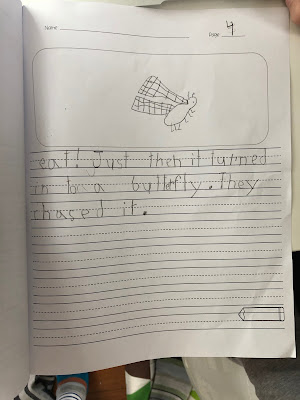 Name
Date 4
eat! Just then it turned
in to a butterfly. They
chased it.